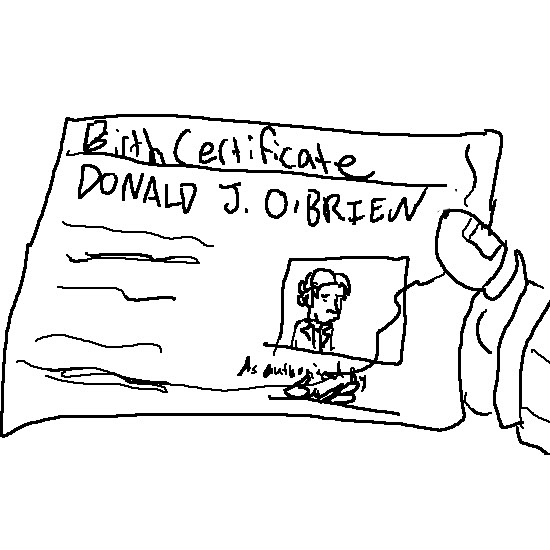 Birth Certificate
DONALD J. O'BRIEN
As authorized by